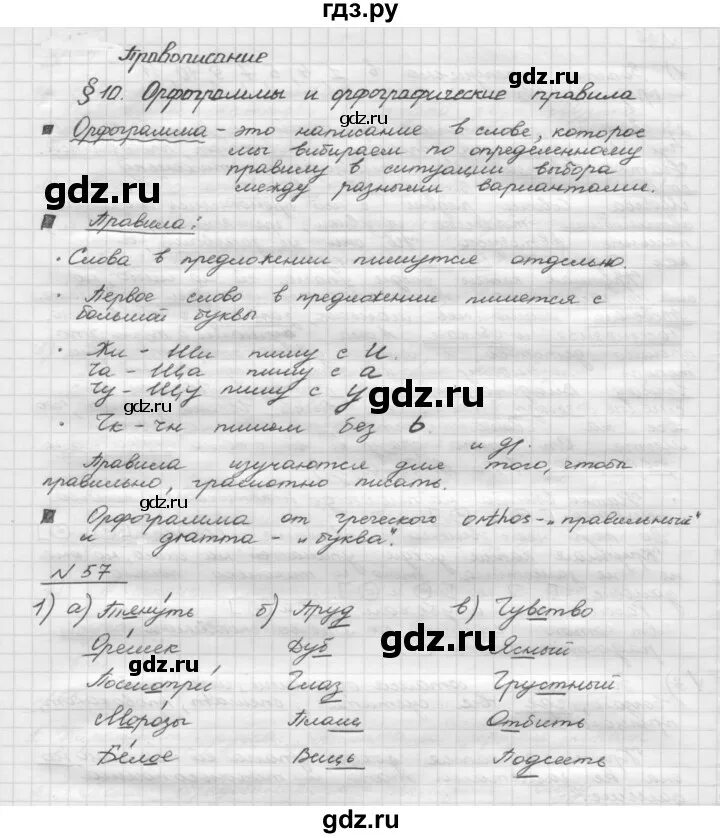 гдз.ру
Правописание
§ 10. Орфограммы и орфографические правила
Орфограмма - это написание в слове, которое
мы вибираем по определенному
правилу в ситуации выбора
между разными вариантами.
gdz.ru
Правила:
· Слова в предложении пишутся отдельно.
· Первое слово в предложении пишется с
большой буквы
· Жи - Ши пишу с И.
Ча - Ща пишу с а
Чу - Щу пишу с у
· Чк - чн пишем без ь
и др.
Правила изучаются для того, чтобы
правильно, грамотно писать.
Орфограмма от греческого orthos - „правильный"
и gramma - „буква".
N 57
1) а) Тянуть б) Пруд в) Чувство
Орешек Дуб Ясный
Посмотри Глаз Грустный
Морозы Плащ Отбить
Белое Вещь Подсесть
gdz.ru
gdz.ru
gdz.ru
gdz.ru
gdz.ru
gdz.ru
gdz.ru
gdz.ru
gdz.ru
gdz.ru
gdz.ru